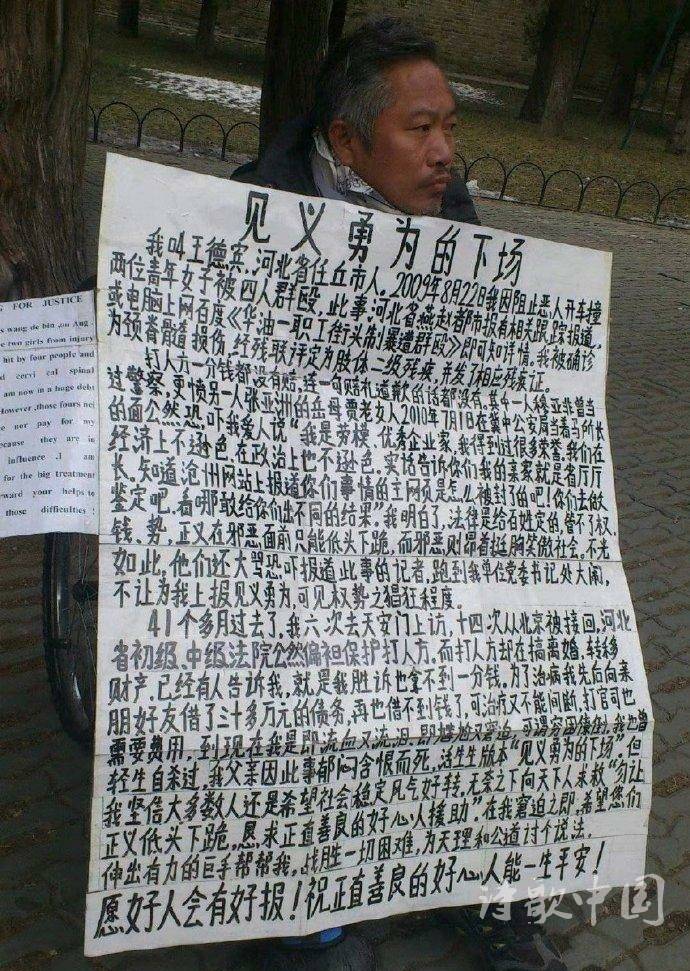 见义勇为的下场
我叫王德宾,河北省任丘市人。2009年8月22日我因阻止恶人开车撞
两位青年女子被四人群殴,此事河北省燕赵都市报有相关跟踪报道,
或电脑上网百度《华油一职工街头制暴遭群殴》即可知详情。我被确诊
为颈脊髓损伤,经残联评定为肢体二级残疾,并发了相应残疾证。
打人方一分钱都没有赔,连一句赔礼道歉的话都没有。其中一人穆亚非曾当
过警察,更愤另一人张亚洲的岳母贾老女人2010年7月1日在冀中公安局当着马所长
的面公然恐吓我爱人说“我是劳模、优秀企业家,我得到过很多荣誉,我们在
经济上不逊色,在政治上也不逊色,实话告诉你们我的亲家就是省厅厅
长,知道沧州网站上报道你们事情的主网页是怎么被封了的吧!你们去做
鉴定吧,看哪敢给你们出不同的结果”。我明白了,法律是给百姓定的,管不了权、
钱、势,正义在邪恶面前只能低头下跪,而邪恶则昂首挺胸笑傲社会。不光
如此,他们还大骂恐吓报道此事的记者,跑到我单位党委书记处大闹,
不让为我上报见义勇为,可见权势之猖狂程度。
41个多月过去了,我六次去天安门上访,十四次从北京被接回,河北
省初级、中级法院公然偏袒保护打人方,而打人方却在搞离婚,转移
财产,已经有人告诉我,就是我胜诉也拿不到一分钱。为了治病我先后向亲
朋好友借了三十多万元的债务,再也借不到钱了,可治疗又不能间断,打官司也
需要费用,到现在我是即流血又流泪、即尴尬又窘迫,可谓穷困潦倒,我也曾
轻生自杀过,我父亲因此事郁闷含恨而死,活生生版本“见义勇为的下场”但
我坚信大多数人还是希望社会稳定风气好转,无奈之下向天下人求救“勿让
正义低头下跪,恳求正直善良的好心人援助”在我窘迫之即,希望您们
伸出有力的巨手帮帮我,战胜一切困难,为天理和公道讨个说法。
愿好人会有好报!祝正直善良的好心人能一生平安!
G FOR JUSTICE
s wang de bin ,on Ang
e two girls from injury
hit by four people and
d cervi cal spinal
am now in a huge debt
However ,those fours nei
to nor pay for my
ecause they are in
influence .I am
for the big treatment
eward your helps to
those difficulties!
诗歌中国